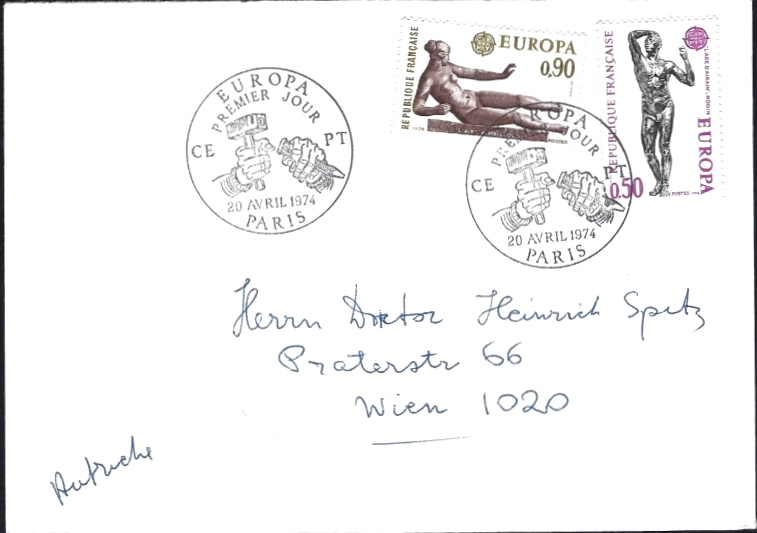 RÉPUBLIQUE FRANÇAISE
EUROPA
0,90
1974
POSTES
RÉPUBLIQUE FRANÇAISE
"L'AGE D'AIRAIN", RODIN
EUROPA
0,50
POSTES
EUROPA
PREMIER JOUR
CE PT
20 AVRIL 1974
PARIS
EUROPA
PREMIER JOUR
CE PT
20 AVRIL 1974
PARIS
Herrn Doktor Heinrich Spitz
Praterstr 66
Wien 1020
Autriche